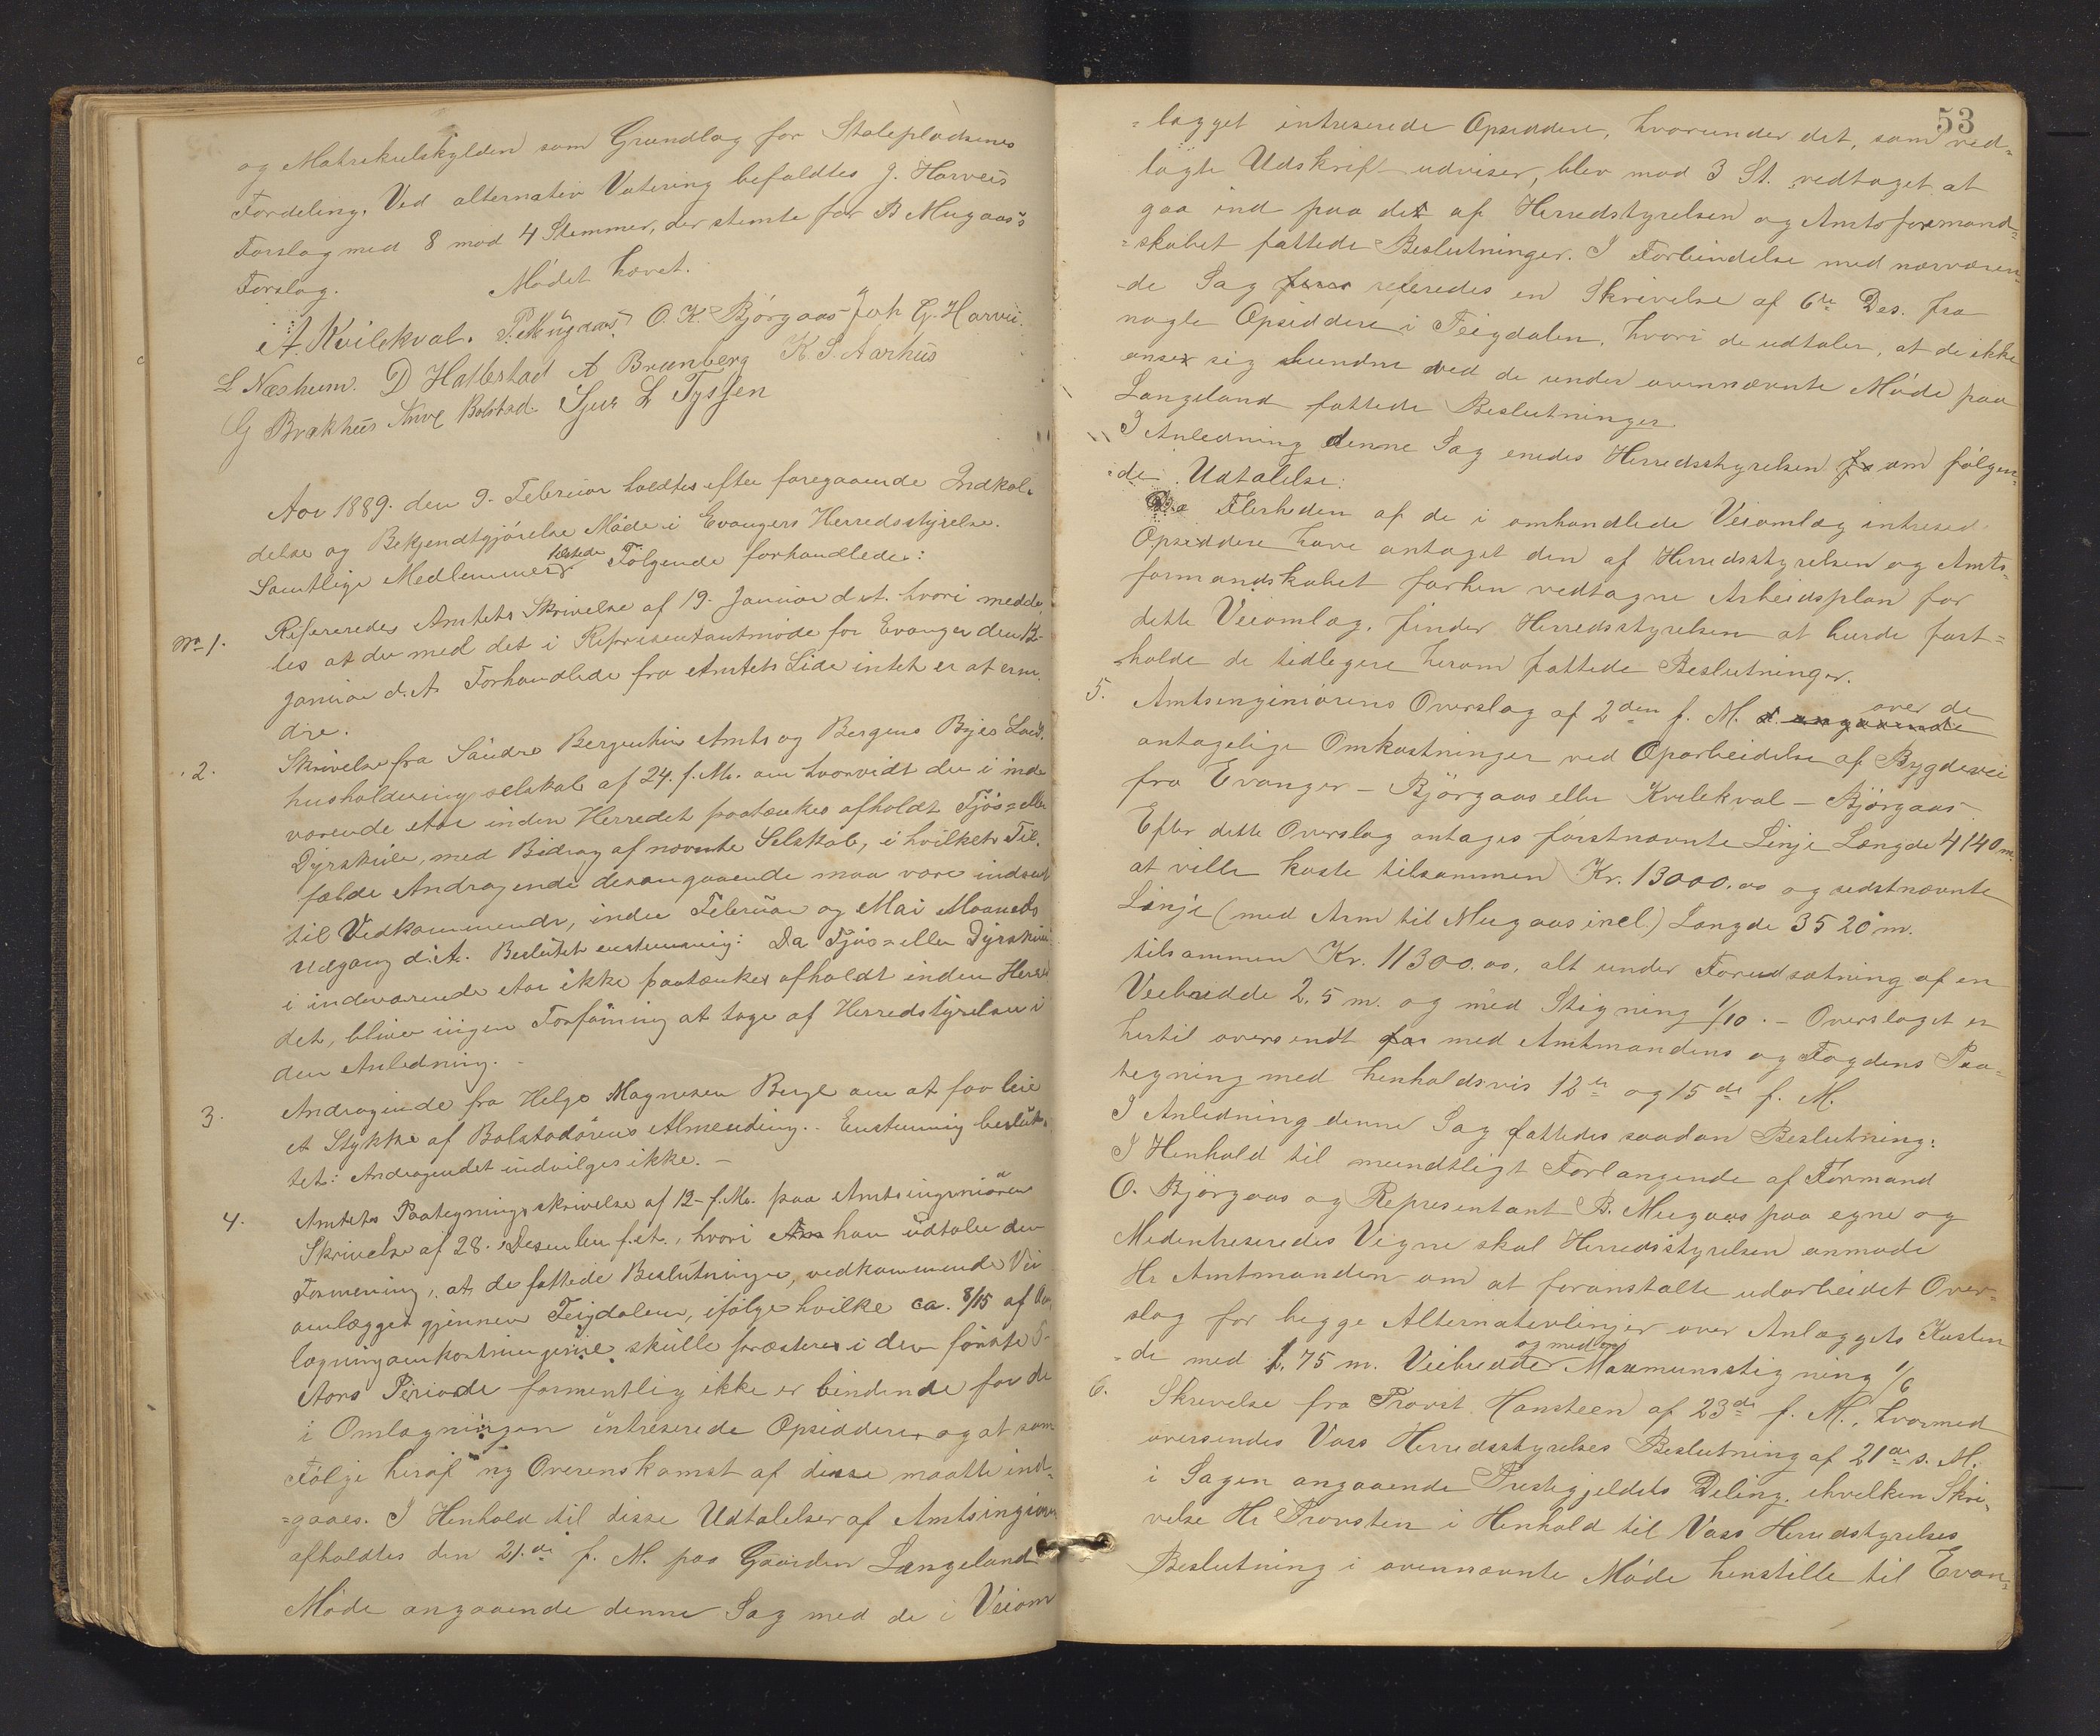 og Matrikulskylden som Grundlag for Stolepladsenes
Fordeling. Ved alternativ Votering befaldtes J. Horveis
Forslag med 8 mod 4 Stemmer, der stemte for B Mugaas's
Forslag.
Mödet hævet.
A. Kvilekval. B. Mügaas O. K. Björgaas Joh G. Horvei.
L Næsheim. D Hallestad A Brunberg K. S. Aarhüs
G Brækhüs Anve Bolstad Sjur L Tyssen
Aar 1889. den 9. Februar holdtes efter foregaaende Indkal-
delse og Bekjendtgjörelse Möde i Evangers Herredsstyrelse.
Samtlige Medlemmer tilstede Fölgende forhandledes:
No 1. Refereredes Amtets Skrivelse af 19. Januar d. A. hvori medde-
les at der med det i Representantmöde for Evanger den 12-
Januar d. A. Forhandlede fra Amtets Side intet er at erin-
dre.
2. Skrivelse fra Söndre Bergenhus Amts og Bergens Byes Land-
husholdningsselskab af 24. f. M. om hvorvidt der i inde-
værende Aar inden Herredet paatænkes afholdt Fjös- eller
Dyrskue, med Bidrag af nævnte Selskab, i hvilket Til-
fælde Andragende desangaaende maa være indsendt
til Vedkommende, inden Februar og Mai Maaneds
Udgang d. A. Beslüttet enstemmig: Da Fjös- eller Dyrskue
i indeværende Aar ikke paatænkes afholdt inden Herre-
det, bliver ingen Forföining at tage af Herredstyrelsen i
den Anledning. -
3. Andragende fra Helge Magnesen Berge om at faa leie
et Stykke af Bolstadörens Almending. Enstemmig beslüt-
tet: Andragendet indvilges ikke. -
4. Amtets Paategningsskrivelse af 12- f. M. paa Amtsingeniörens
Skrivelse af 28. Desember f. A., hvori han üdtaler den
Formening, at de fattede Beslütninger, vedkommende Vei
omlægget gjennem Teigdalen, ifölge hvilke ca. 8/15 af Om-
lægningsomkostningerne skülle præsteres i den förste 5-
Aars Periode formentlig ikke er bindende for de
i Omlægningen intreserede Opsiddere, og at som
Fölge heraf ny Overenskomst af disse maatte ind-
=gaaes. I Henhold til disse Udtalelser af Amtsingiören
afholdtes den 21.de f. M. paa Gaarden Langeland
Möde angaaende denne Sag med de i Veiom
53
=lægget intreserede Opsiddere, hvorunder det, som ved-
lagte Udskrift udviser, blev mod 3 St. vedtaget at
gaa ind paa det af Herredstyrelsen og Amtsformand-
=skabet fattede Beslutninger. I Forbindelse med nærværen-
-de Sag referedes en Skrivelse af 6te Des. fra
nogle Opsiddere i Teigdalen, hvori de udtaler, at de ikke
anser sig bundne ved de under ovennævnte Möde paa
Langeland fattede Beslutninger
I Anledning denne Sag enedes Herredsstyrelsen om fölgen-
=de Udtalelse:
Da Flerheden af de i omhandlede Veiomlæg intresed
Opsiddere have antaget den af Herredsstyrelsen og Amts-
formandskabet forhen vedtagne Arbeidsplan for
dette Veiomlæg, finder Herredsstyrelsen at burde fast-
holde de tidligere herom fattede Beslutninger.
5. Amtsenginiörens Overslag af 2den f. M. angaaende over de
antagelige Omkostninger ved Oparbeidelse af Bygdevei
fra Evanger - Björgaas eller Kvilekval - Björgaas
Efter dette Overslag antages förstnævnte Linje Længde 4140 m.
at ville koste tilsammen Kr. 13000.00 og sidstnævnte
Linje (med Arm til Mugaas incl.) Længde 3520 m.
tilsammen Kr. 11300.00, alt under Forudsætning af en
Veibredde 2.5 m. og med Stigning 1/10. - Overslaget er
hertil oversendt med Amtmandens og Fogdens Paa-
tegning med henholdsvis 12te og 15de f. M.
I Anledning denne Sag fattedes saadan Beslutning:
I Henhold til mundtligt Forlangende af Formand
O. Björgaas og Representant B. Mugaas paa egne og
Medintreseredes Vegne skal Herredsstyrelsen anmode
Hr Amtmanden om at foranstalte udarbeidet Over-
slag for begge Alternativlinjer over Anlæggets Kosten
=de med 1.75 m. Veibredde og med Maxmumsstigning 1/6
6. Skrivelse fra Provst Hansteen af 23de f. M., hvormed
oversendes Voss Herredsstyrelses Beslutning af 21de s. M.
i Sagen angaaende Prestegjeldets Deling, ihvilken Skri-
velse Hr Provsten i Henhold til Voss Herredstyrelses
Beslutning i ovennævnte Möde henstille til Evan-